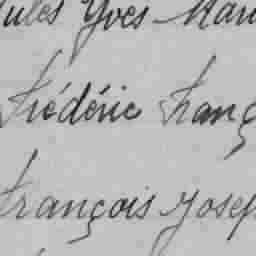 Jules Yves Mari
Frédéric Franç
François Josep